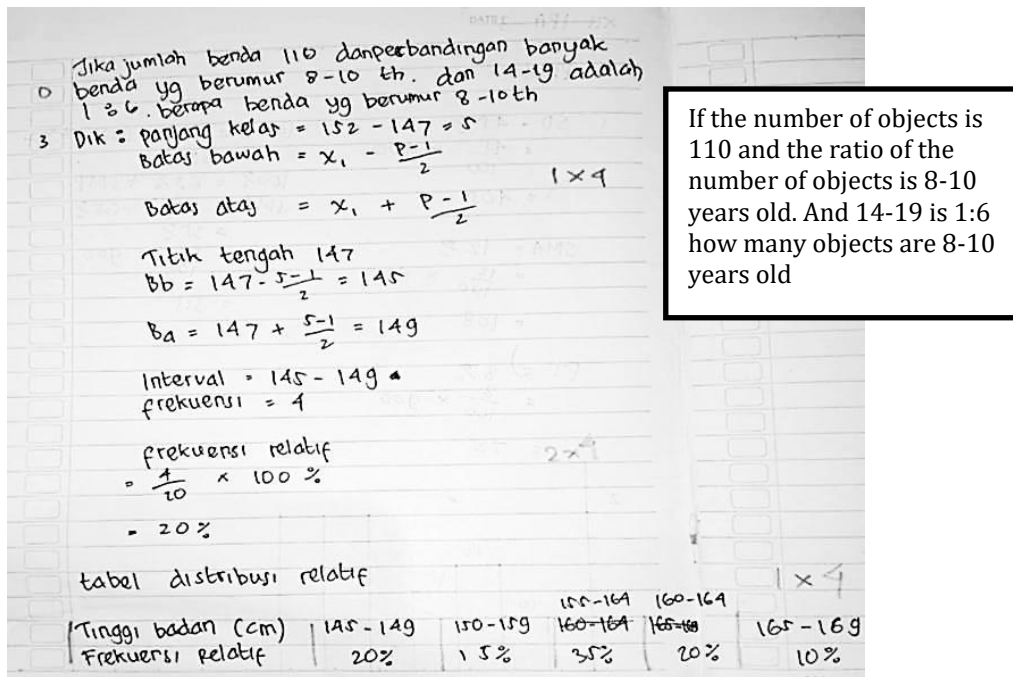 Jika jumlah benda 110 danperbandingan banyak
benda yg berumur 8-10 th. dan 14-19 adalah
1 : 6. berapa benda yg berumur 8-10th
3 Dik : panjang kelas = 152 - 147 = 5
Batas bawah = x₁ - P-1/2
1x4
Batas atas = x₁ + P-1/2
Titik tengah 147
Bb = 147 - 5-1/2 = 145
Ba = 147 + 5-1/2 = 149
Interval = 145 - 149
frekuensi = 4
frekuensi relatif
2x4
= 4/20 x 100 %
= 20%
tabel distribusi relatif
1x4
155-164 160-164
Tinggi badan (cm) 145-149 150-159 160-164 165-169 165-169
Frekuensi Relatif 20% 15% 35% 20% 10%
If the number of objects is
110 and the ratio of the
number of objects is 8-10
years old. And 14-19 is 1:6
how many objects are 8-10
years old